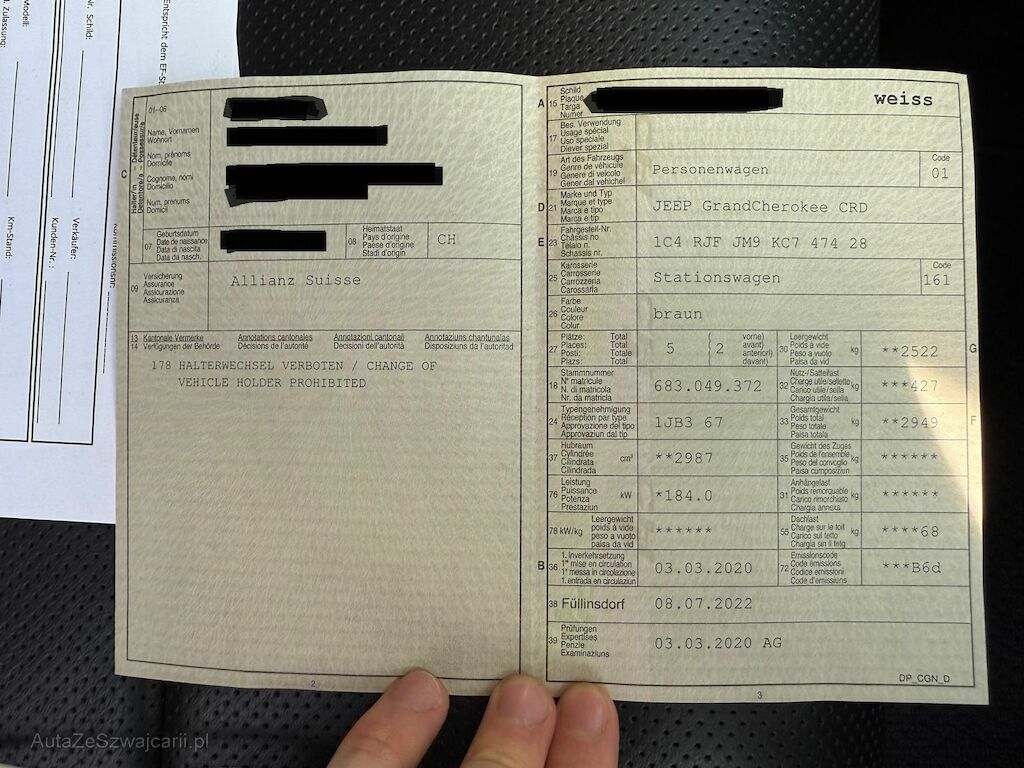 Entspricht dem EF-St
Modell:
. Zulassung:
Nr. Schild:
Km-Stand:
Verkäufer:
Kunden-Nr. :
C
Halter/in – Détenteur/euse
01-06
Name, Vornamen
Wohnort
Nom, prénoms
Domicile
Cognome, nomi
Domicilio
Num, prenums
Domicil
07
Geburtsdatum
Date de naissance
Data di nascita
Data da nasch.
08
Heimatstaat
Pays d'origine
Paese d'origine
Stadi d'origin
CH
09
Versicherung
Assurance
Assicurazione
Assicuranza
Allianz Suisse
13 Kantonale Vermerke Annotations cantonales Annotazioni cantonali Annotaziuns chantunalas
14 Verfügungen der Behörde Décisions de l'autorité Decisioni dell'autorità Disposiziuns da l'autoritad
178 HALTERWECHSEL VERBOTEN / CHANGE OF
VEHICLE HOLDER PROHIBITED
2
A
15
Schild
Plaque
Targa
Numer
weiss
17
Bes. Verwendung
Usage spécial
Uso speciale
Diever spezial
19
Art des Fahrzeugs
Genre de véhicule
Genere di veicolo
Gener dal vehichel
Personenwagen
Code
01
D
21
Marke und Typ
Marque et type
Marca e tipo
Marca e tip
JEEP GrandCherokee CRD
E
23
Fahrgestell-Nr.
Châssis no
Telaio n.
Schassis nr.
1C4 RJF JM9 KC7 474 28
25
Karosserie
Carrosserie
Carrozzeria
Carossaria
Stationswagen
Code
161
26
Farbe
Couleur
Colore
Colur
braun
27
Plätze: Total
Places: Total
Posti: Totale
Plazs: Total
5 2
vorne)
avant)
anteriori)
davant)
30
Leergewicht
Poids à vide
Peso a vuoto
Paisa da vid
kg
**2522
G
18
Stammnummer
N° matricule
N. di matricola
Nr. da matricla
683.049.372
32
Nutz-/Sattellast
Charge utile/sellette
Carico utile/sella
Chargia utila/sella
kg
***427
24
Typengenehmigung
Réception par type
Approvazione del tipo
Approvaziun dal tip
1JB3 67
33
Gesamtgewicht
Poids total
Peso totale
Paisa totala
kg
**2949
F
37
Hubraum
Cylindrée
Cilindrata
Cilindrada
cm³
**2987
35
Gewicht des Zuges
Poids de l'ensemble
Peso del convoglio
Paisa cumposiziun
kg
******
76
Leistung
Puissance
Potenza
Prestaziun
kW
*184.0
31
Anhängelast
Poids remorquable
Carico rimorchiato
Chargia annexa
kg
******
78 kW/kg
Leergewicht
poids à vide
peso a vuoto
paisa da vid
******
55
Dachlast
Charge sur le toit
Carico sul tetto
Chargia sin il tetg
kg
****68
B
36
1. Inverkehrsetzung
1re mise en circulation
1a messa in circolazione
1. entrada en circulaziun
03.03.2020
72
Emissionscode
Code émissions
Codice emissioni
Code d'emissiuns
***B6d
38 Füllinsdorf 08.07.2022
39
Prüfungen
Expertises
Perizie
Examinaziuns
03.03.2020 AG
DP_CGN_D
3
AutaZeSzwajcarii.pl